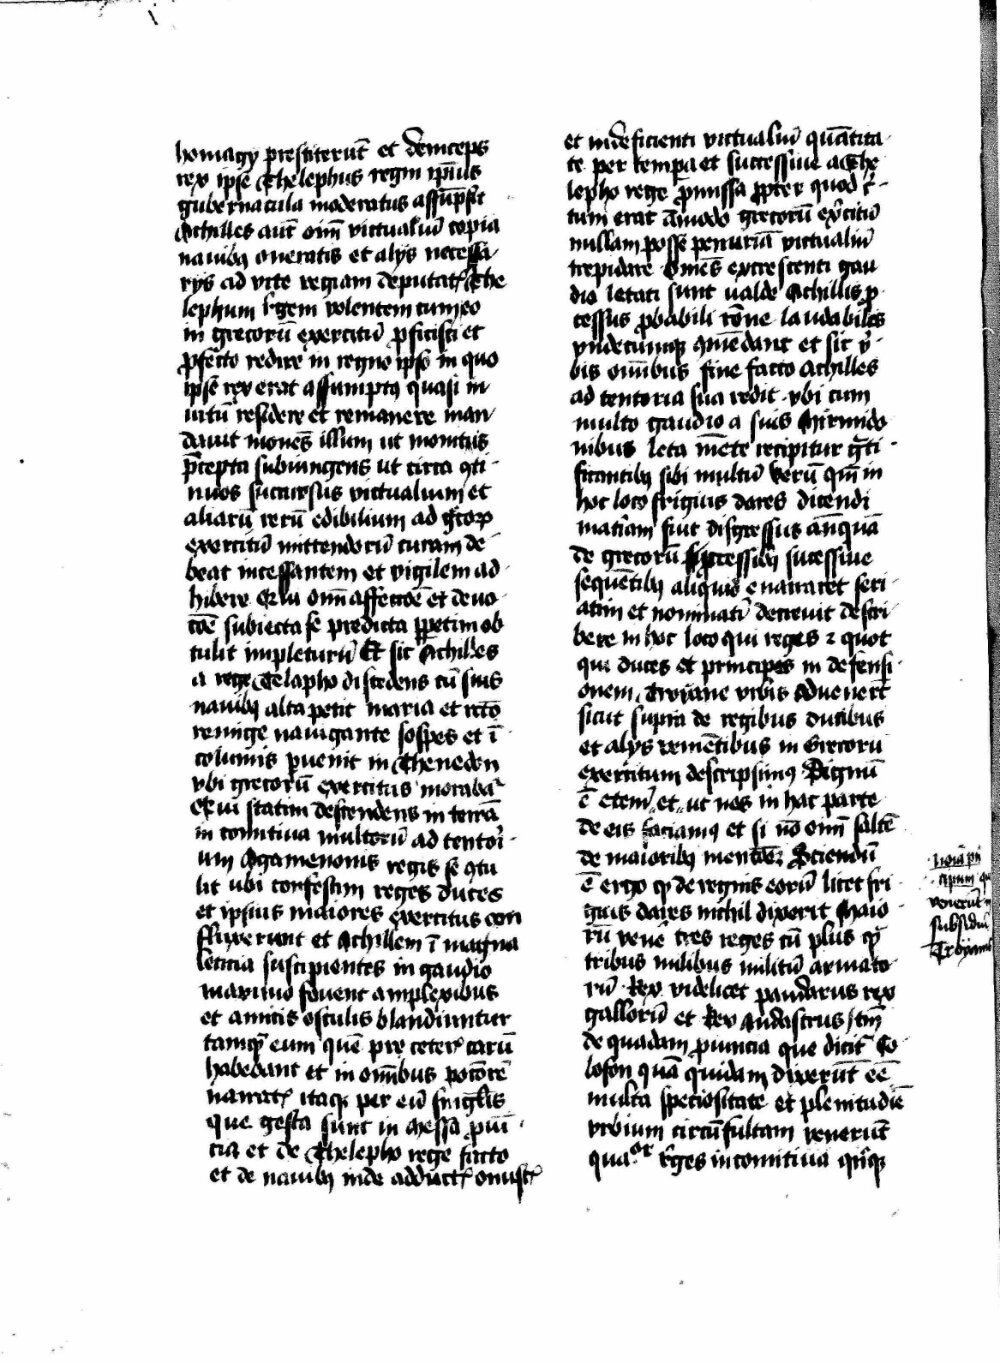 homagij prestiterūt et deinceps
rex ipse Thelephus regni ip̄ius
gubernacula moderatus assūpsit
Achilles aut̄ om̄i victualiū copia
nauibꝫ oneratis et alijs necessa
rijs ad vite regiam deputat The
lephum regem volentem cum eo
in grecorū exercitū ꝓficisci et
ꝓfecto redire in regno ip̄o in quo
ipse rex erat assumptꝰ quasi in
uitū residere et remanere man
dauit mones illum ut monitus
p̄cepta subiungens ut circa ꝯti
nuos succursus victualium et
aliarū rerū edibilium ad g̃coꝝ
exercitū mittendorū curam de
beat incessantem et vigilem ad
hibere om̄i affectōe et deuo
cōe subiecta se predicta ꝑpetim ob
tulit impleturū Et sic Achilles
a rege Telapho discedens cū suis
nauibꝫ alta petit maria et recto
remige nauigante sospes et ī
columis puenit in Thenedon
vbi grecorū exercitus morabat
Et ui statim descendens in terrā
in comitiua multorū ad tentori
um Agamenonis regis se ꝯtu
lit ubi confestim reges duces
et ipsius maiores exercitus con
fluxerunt et Achillem ī magna
leticia suscipientes in gaudio
maximo fouent amplexibus
et amicis osculis blandiuntur
tamqꝫ eum quē pre ceteris carū
habebant et in om̄ibus pocōrē
narrat itaqꝫ per eū sīglis
que gesta sunt in Messa prouī
cia et de Thelepho rege facto
et de nauibꝫ inde adduct onust
et indeficienti victualiū quātita
te per tempa et successiue a The
lepho rege ꝓmissa ꝓpter quod c̄
tum erat āmodo grecorū ex̄citū
nullam posse penuriā victualiū
trepidare Om̄es excrescenti gau
dio letati sunt ualde Achillis ꝓ
cessus ꝓbabili rōne laudabiles
vndecūqꝫ ꝯmēdant et sic v̄
bis om̄ibus fine facto Achilles
ad tentoria sua redit vbi cum
multo gaudio a suis Mirmido
nibus leta mēte recipitur g̃ti
ficantibꝫ sibi multū Verū qm̄ in
hoc loco frigius dares dicendi
matīam fiut disgressus anquā
de grecorū successiue
sequētibꝫ aliquid enarraret seri
atim et nominatī decreuit descri
bere in hoc loco qui reges ⁊ quot
qui duces et principes in defensi
onem Troyane vrbis aduenerēt
sicut supra de regibus ducibus
et alijs venētibus in Grecorū
exercitum descripsimꝰ Dignū
ē etem et ut nos in hac parte
de eis faciamꝰ et si nō om̄i saltē
de maioribꝫ mentōem Sciendū
ē ergo ꝙ de regnis eorū licet fri
gius dares nichil dixerit Maio
rū venē tres reges cū plus ꝙ̄
tribus milibus militū armato
rū Rex videlicet pandarus rex
gallorū et Rex Andastrus
de quadam ꝓuincia que dicit Co
lofon quā quidam dixerūt eē
multa speciositate et plenitudīe
vrbium circūfultam venerūt
quatuor reges in comitiua quīqꝫ
venerūt
subsidiū
Troyanis